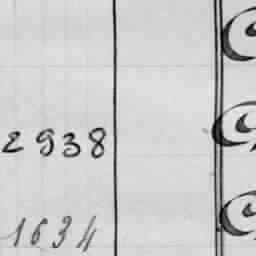 2938
1634